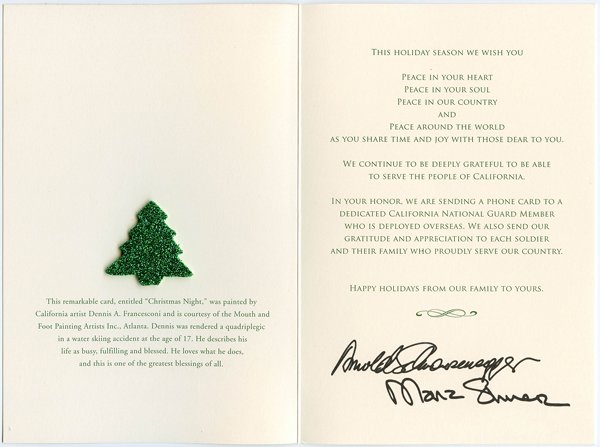 This remarkable card, entitled “Christmas Night,” was painted by
California artist Dennis A. Francesconi and is courtesy of the Mouth and
Foot Painting Artists Inc., Atlanta. Dennis was rendered a quadriplegic
in a water skiing accident at the age of 17. He describes his
life as busy, fulfilling and blessed. He loves what he does,
and this is one of the greatest blessings of all.
This holiday season we wish you
Peace in your heart
Peace in your soul
Peace in our country
and
Peace around the world
as you share time and joy with those dear to you.
We continue to be deeply grateful to be able
to serve the people of California.
In your honor, we are sending a phone card to a
dedicated California National Guard Member
who is deployed overseas. We also send our
gratitude and appreciation to each soldier
and their family who proudly serve our country.
Happy holidays from our family to yours.
Arnold Schwarzenegger
Maria Shriver